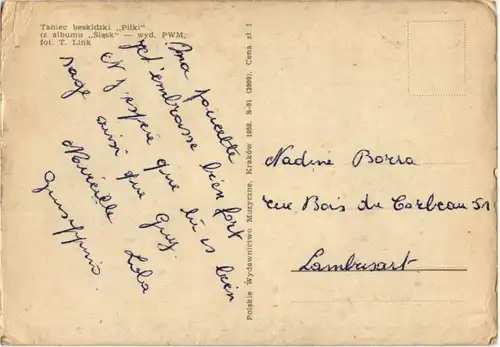 Taniec beskidzki „Piłki"
(z albumu „Śląsk" — wyd. PWM;
fot. T. Link
Ma poucette
je t'embrasse bien fort
et j'espère que tu es bien
sage ainsi que Guy.
Mireille Lola
Giuseppino.
Polskie Wydawnictwo Muzyczne, Kraków 1958. S-81 (2909). Cena zł 1
Nadine Borra
rue Bois du Corbeau 51
Lambusart